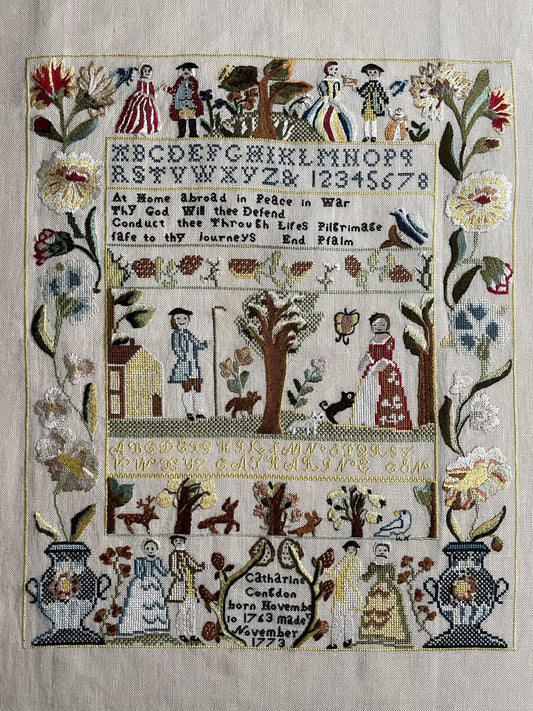 ABCDEFGHIKLMNOPQ
RSTVWXYZ& 12345678
At Home abroad in Peace in War
Thy God Will thee Defend
Conduct thee Through Lifes Pilgrimage
fafe to thy Journeys End Pfalm
ABCDEFGHIKLMNOPQRST
VWXYZ CATHARINE CON
Catharine
Congdon
born Novembe
10 1763 made
November
1773